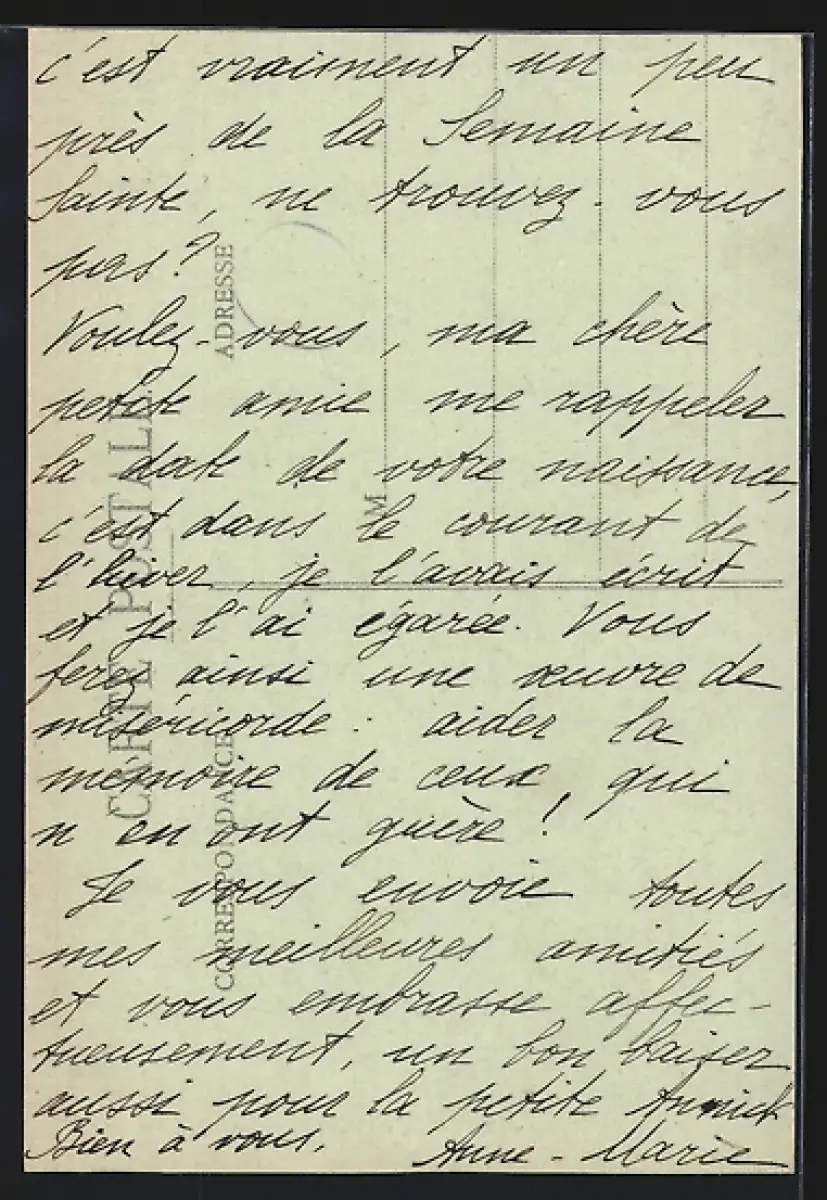 c'est vraiment un peu
près de la Semaine
Sainte, ne trouvez-vous
pas?
Voulez-vous, ma chère
petite amie me rappeler
la date de votre naissance,
c'est dans le courant de
l'hiver, je l'avais écrit
et je l'ai égarée. Vous
ferez ainsi une œuvre de
miséricorde : aider la
mémoire de ceux, qui
n'en ont guère!
Je vous envoie toutes
mes meilleures amitiés
et vous embrasse affec-
tueusement, un bon baiser
aussi pour la petite Annick
Bien à vous.
Anne-Marie
CARTE POSTALE
CORRESPONDANCE
ADRESSE
M